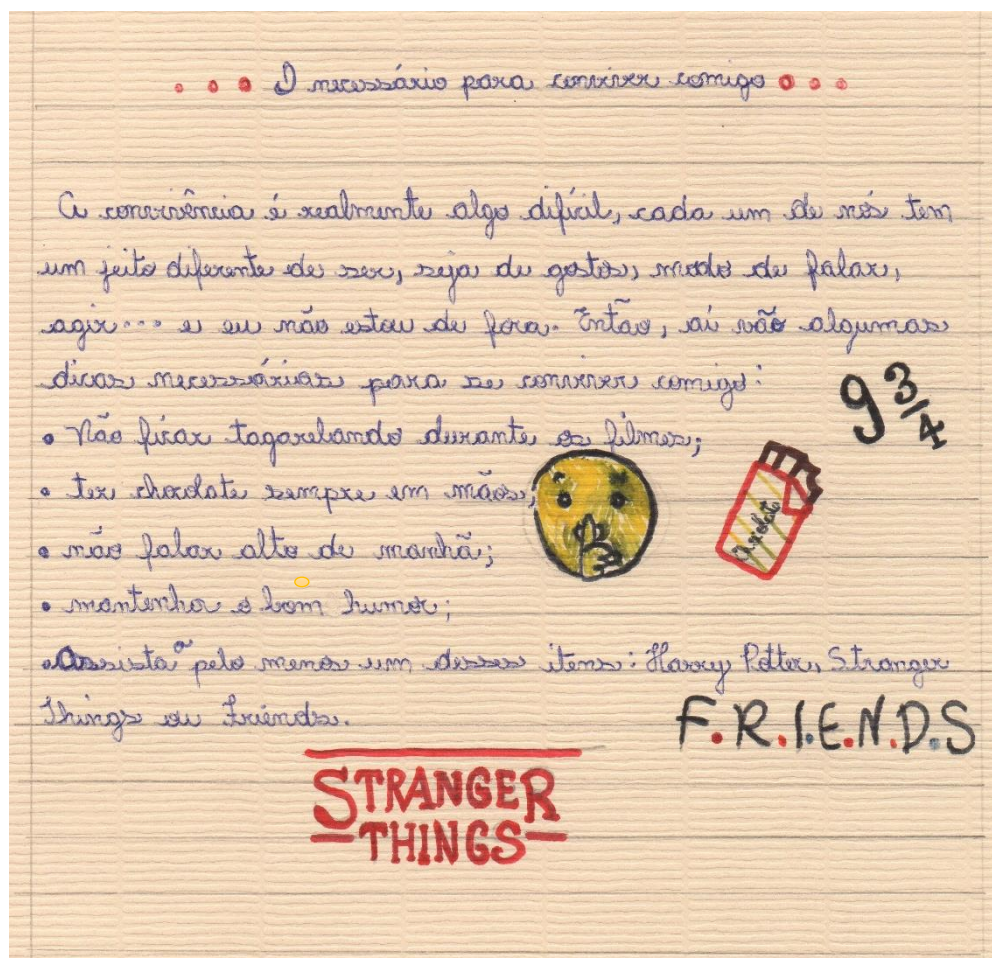 O necessário para conviver comigo
A convivência é realmente algo difícil, cada um de nós tem
um jeito diferente de ser, seja de gostos, modo de falar,
agir... e eu não estou de fora. Então, aí vão algumas
dicas necessárias para se conviver comigo:
9 3/4
• Não ficar tagarelando durante os filmes;
• ter chocolate sempre em mãos;
Chocolate
• não falar alto de manhã;
• mantenha o bom humor;
• Assista a pelo menos um desses itens: Harry Potter, Stranger
Things ou Friends.
F.R.I.E.N.D.S
STRANGER
THINGS